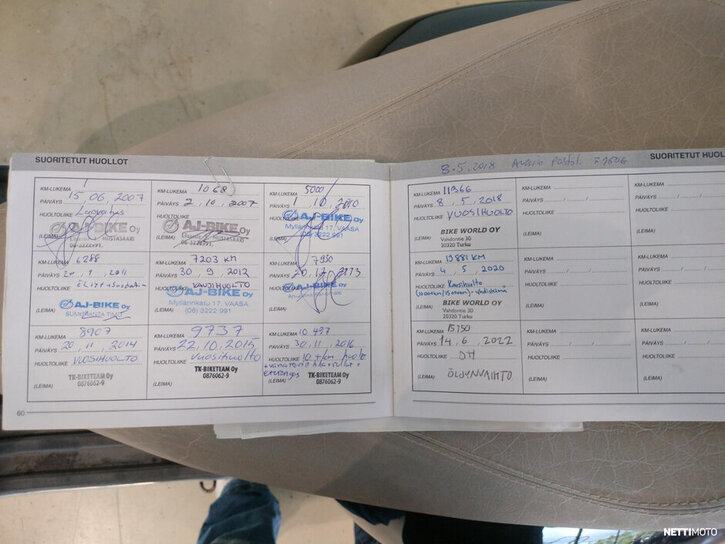 SUORITETUT HUOLLOT
KM-LUKEMA 1
PÄIVÄYS 15.06.2007
HUOLTOLIIKE Luovutus
(LEIMA) AJ-BIKE Oy
KM-LUKEMA 1068
PÄIVÄYS 2.10.2007
HUOLTOLIIKE
(LEIMA) AJ-BIKE Oy
KM-LUKEMA 5000
PÄIVÄYS 1.10.2010
HUOLTOLIIKE AJ-BIKE Oy
Mylläritkatu 17, VAASA
(LEIMA) (06) 3222 991
KM-LUKEMA 6288
PÄIVÄYS 2011
HUOLTOLIIKE
(LEIMA) AJ-BIKE Oy
KM-LUKEMA 7203 km
PÄIVÄYS 30.9.2012
HUOLTOLIIKE KAUSIHUOLTO
AJ-BIKE Oy
Mylläritkatu 17, VAASA
(LEIMA) (06) 3222 991
KM-LUKEMA 7950
PÄIVÄYS
HUOLTOLIIKE
(LEIMA) AJ-BIKE Oy
KM-LUKEMA 8907
PÄIVÄYS 20.11.2014
HUOLTOLIIKE VUOSIHUOLTO
(LEIMA) TK-BIKETEAM Oy
0876062-9
KM-LUKEMA 9737
PÄIVÄYS 22.10.2015
HUOLTOLIIKE Vuosihuolto
(LEIMA) TK-BIKETEAM Oy
0876062-9
KM-LUKEMA 10 497
PÄIVÄYS 30.11.2016
HUOLTOLIIKE 10 tkm huolto
(LEIMA) TK-BIKETEAM Oy
0876062-9
60
8.5.2018
SUORITETUT HU
KM-LUKEMA 11966
PÄIVÄYS 8.5.2018
HUOLTOLIIKE VUOSIHUOLTO
(LEIMA) BIKE WORLD OY
Vahdontie 30
20320 Turku
KM-LUKEMA
PÄIVÄYS
HUOLTOLIIKE
(LEIMA)
KM-LUKEMA
PÄIVÄYS
HUOLTOLIIKE
(LEIMA)
KM-LUKEMA 13881 KM
PÄIVÄYS 4.5.2020
HUOLTOLIIKE Kausihuolto
(LEIMA) BIKE WORLD OY
Vahdontie 30
20320 Turku
KM-LUKEMA
PÄIVÄYS
HUOLTOLIIKE
(LEIMA)
KM-LUKEMA
PÄIVÄYS
HUOLTOLIIKE
(LEIMA)
KM-LUKEMA 15750
PÄIVÄYS 14.6.2022
HUOLTOLIIKE DH
(LEIMA) ÖLJYNVAIHTO
KM-LUKEMA
PÄIVÄYS
HUOLTOLIIKE
(LEIMA)
KM-LUKEMA
PÄIVÄYS
HUOLTOLIIKE
(LEIMA)
NETTIMOTO